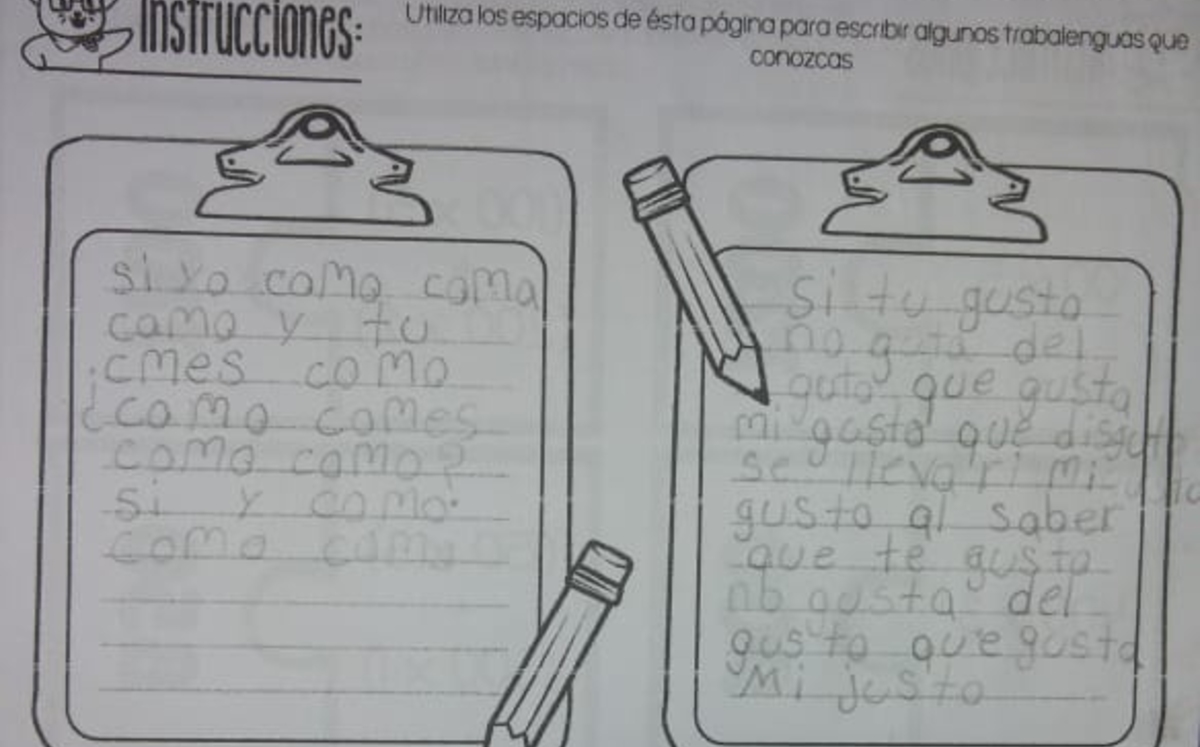 Instrucciones:
Utiliza los espacios de ésta página para escribir algunos trabalenguas que
conozcas
si yo como coma
camo y tu
cmes como
¿como comes
como como?
si y como
como como
Si tu gusto
no guta del
guto que gusta
mi gusto que disguto
se llevari mi
gusto al saber
que te gusto
no gusta del
gusto que gusta
Mi justo